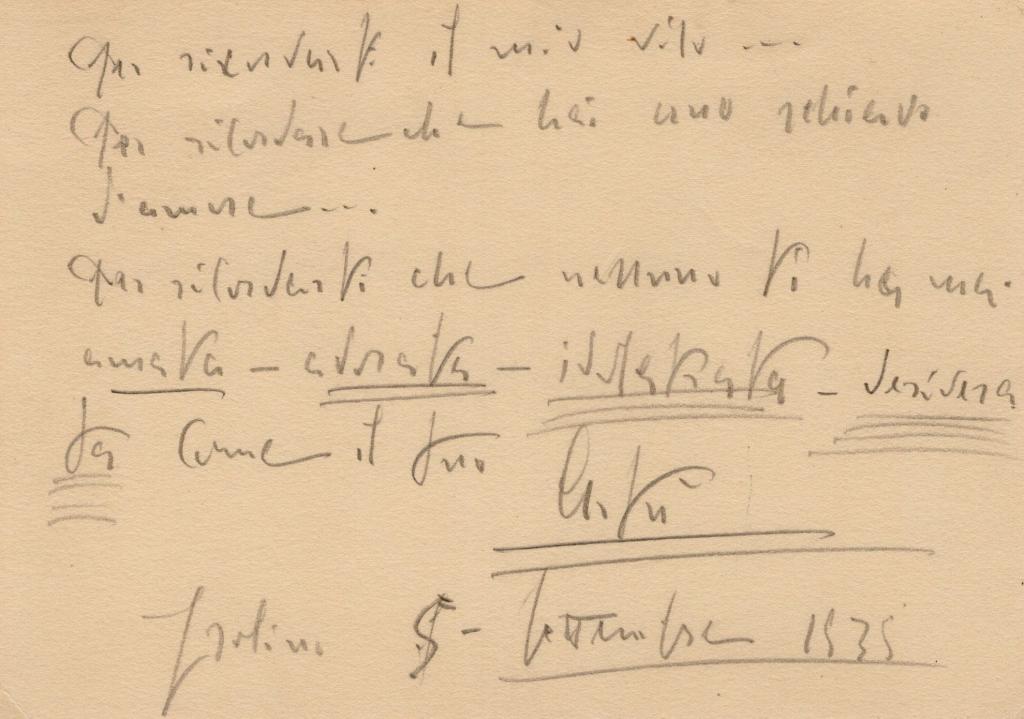 Per ricordarti il mio viso ...
Per ricordare che hai uno schiavo
d'amore ...
Per ricordarti che nessuno ti ha mai
amata - adorata - idolatrata - desidera
ta come il tuo
5 - Settembre 1935